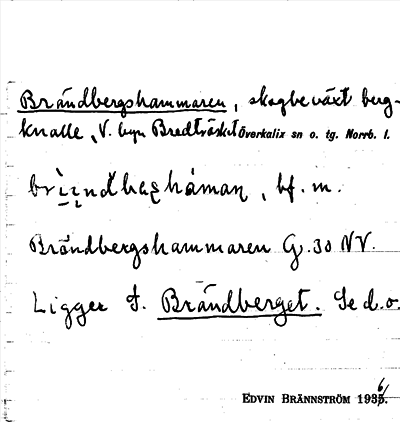 Brändbergshammaren, skogbeväxt berg-
knalle, V. byn Bredträsket Överkalix sn o. tg. Norrb. l.
bf. m.
Brändbergshammaren G. 30 NV.
Ligger i. Brändberget. Se d.o.
EDVIN BRÄNNSTRÖM 1936.